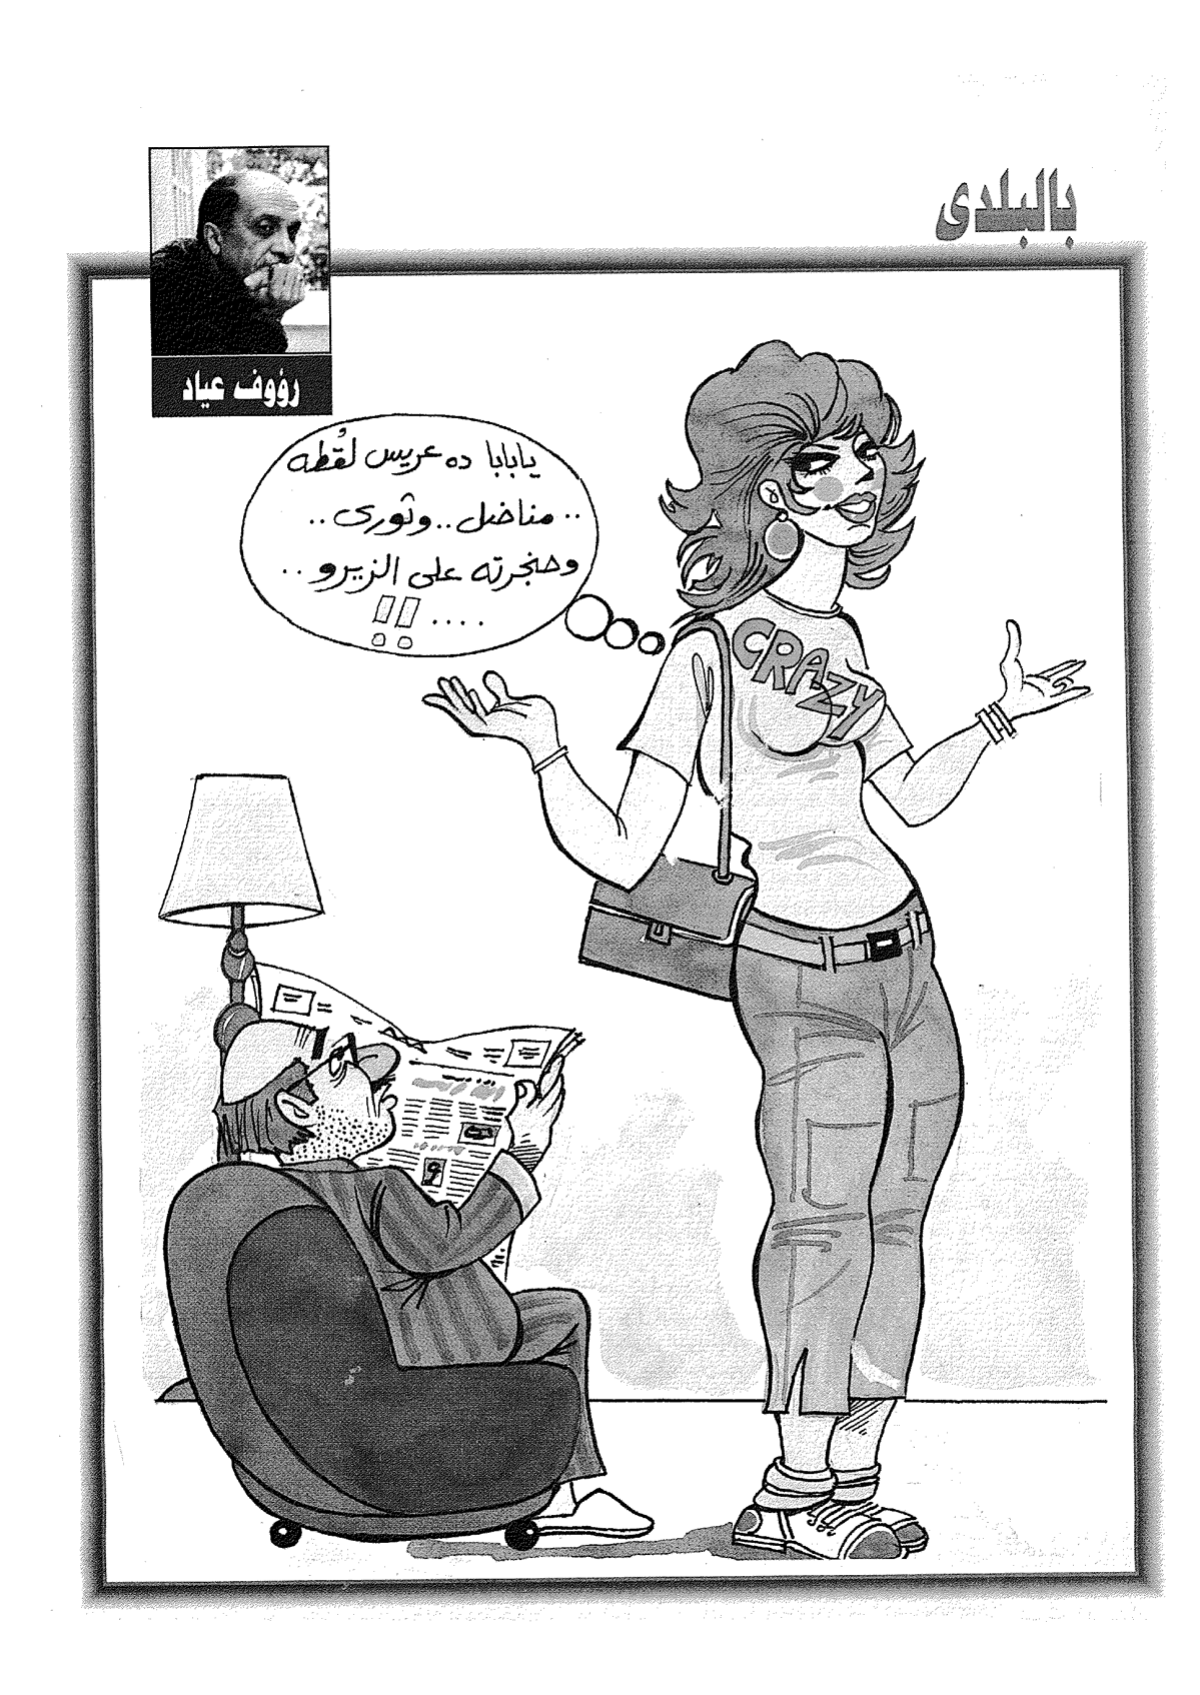 بالبلدى
رؤوف عياد
يابابا ده عريس لُقطه
.. مناضل .. وثورى ..
وحنجرته على الزيرو ..
.... !!
CRAZY